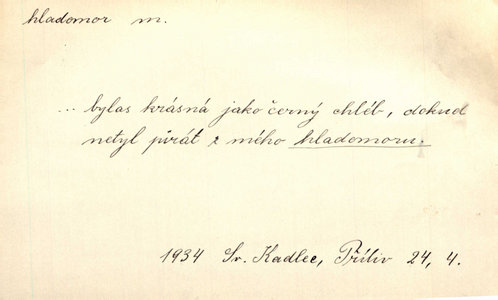 hladomor m.
... bylas krásná jako černý chléb, dokud
netyl pirát z mého hladomoru.
1934 Sv. Kadlec, Příliv 24, 4.